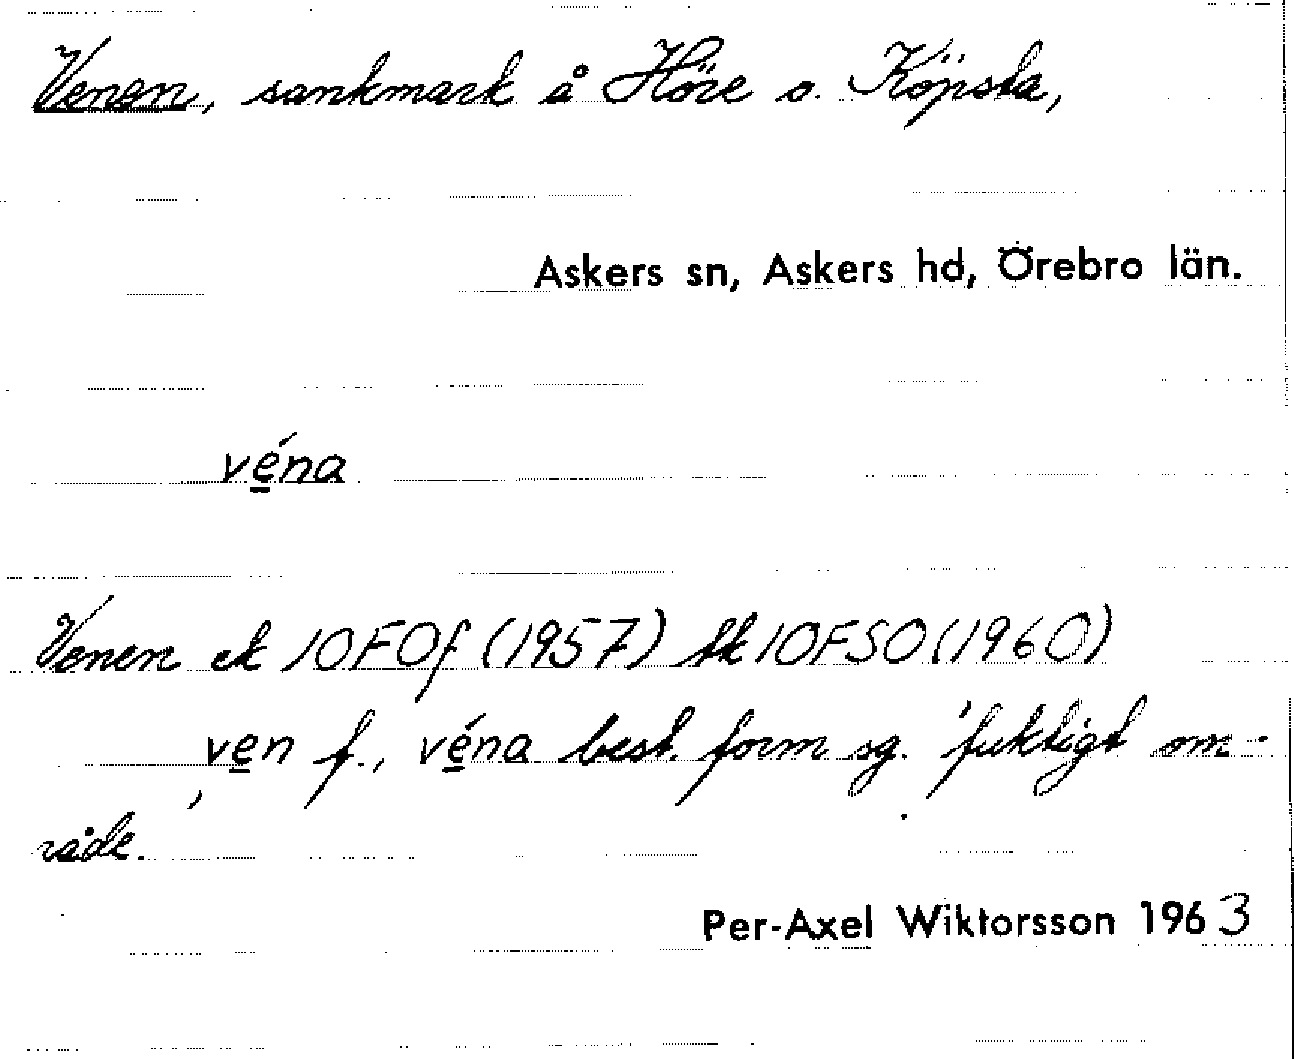 Venen, sankmark å Höre o. Köpsta,
Askers sn, Askers hd, Örebro län.
véna
Venen ek 10FOf (1957) tk 10FSO (1960)
ven f., véna best. form sg. 'fuktigt om-
råde.'
Per-Axel Wiktorsson 1963